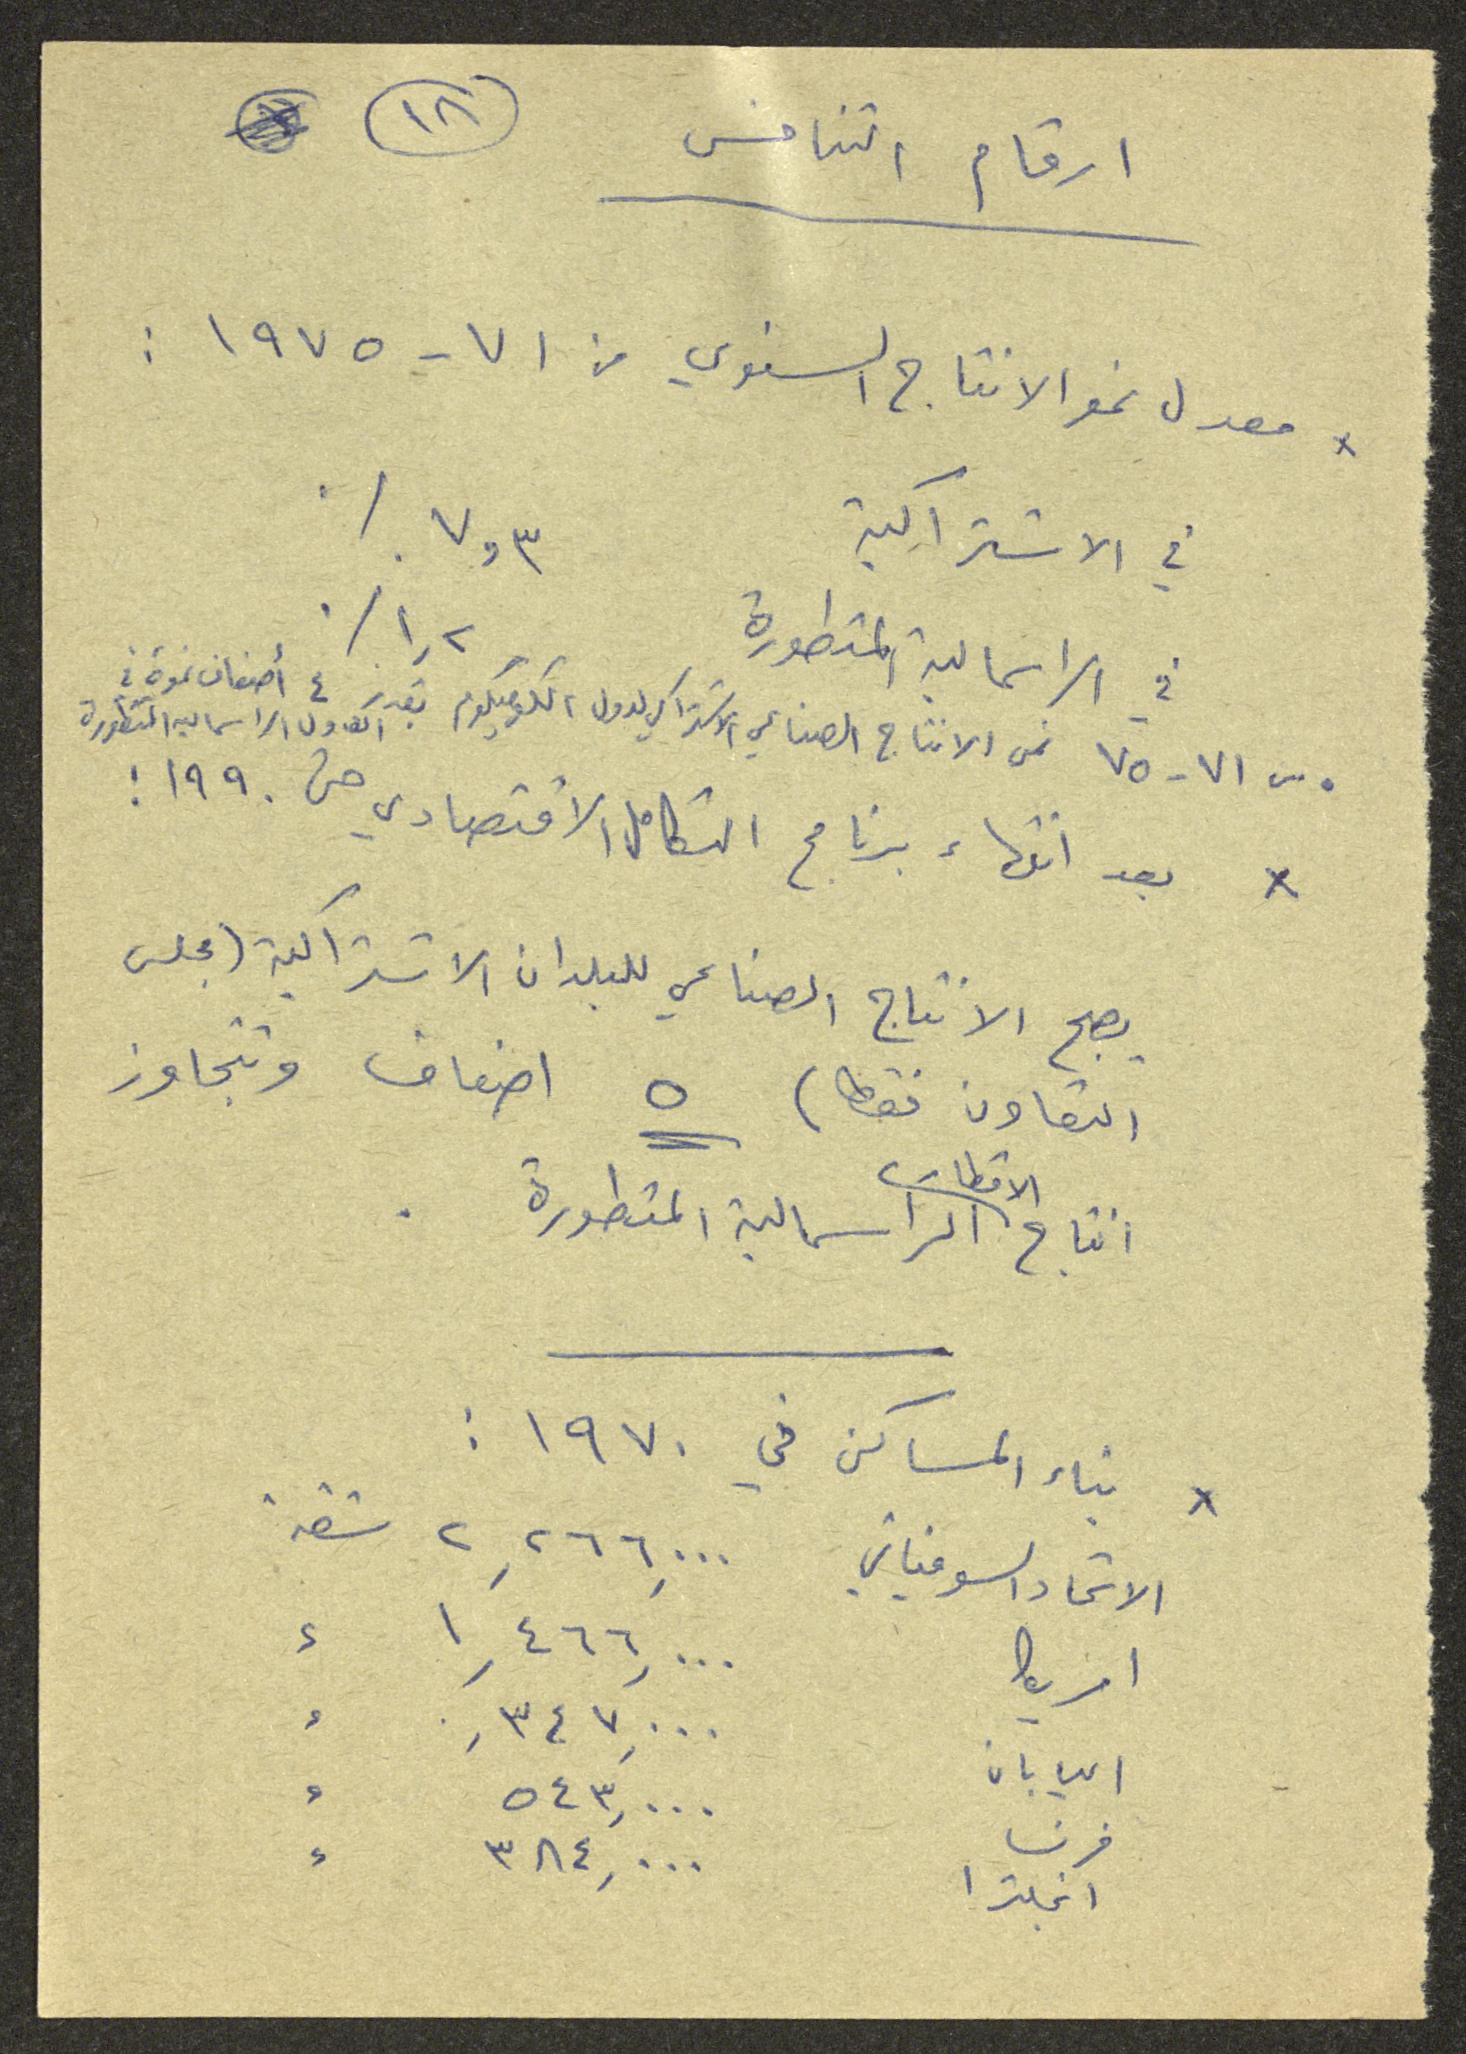 ارقام التنافس ١٨
× معدل نمو الانتاج السنوي من ٧١ - ١٩٧٥ :
في الاشتراكية ٧,٣ ٪
في الراسمالية المتطورة ١,٢ ٪
• من ٧١ - ٧٥ نمى الانتاج الصناعي الاشتراكي لدول الكوميكوم بقدر ٤ أضعاف نموه في
الدول الراسمالية المتطورة
× بعد انتهاء برنامج التكامل الاقتصادي حتى ١٩٩٠ :
يصبح الانتاج الصناعي للبلدان الاشتراكية (مجلس
التعاون فقط) ٥ اضعاف وتتجاوز
انتاج الاقطار الراسمالية المتطورة .
× بناء المساكن في ١٩٧٠ :
الاتحاد السوفياتي ٢,٢٦٦,٠٠٠ شقة
امريكا ١,٤٦٦,٠٠٠ ء
اليابان ٠,٣٤٧,٠٠٠ ء
فرنسا ٥٤٣,٠٠٠ ء
انجلترا ٣٨٤,٠٠٠ ء